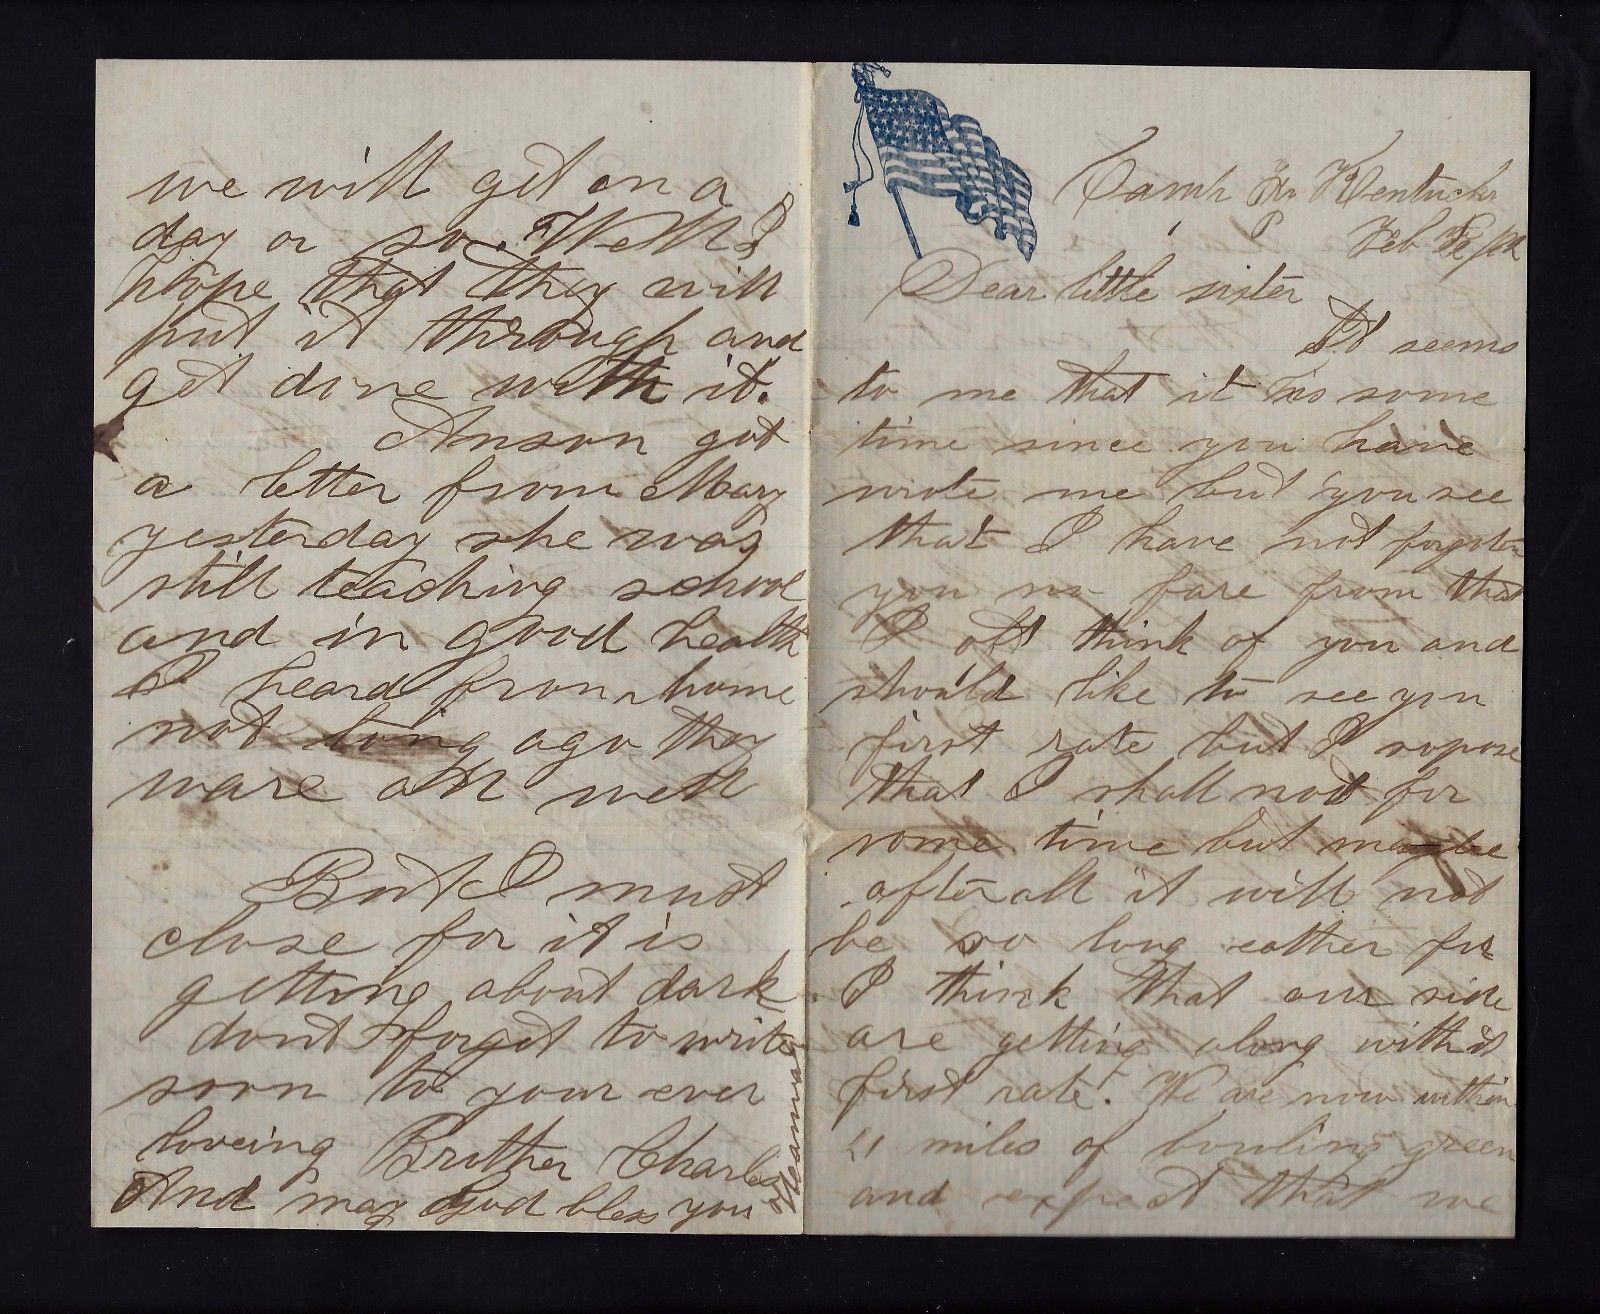 Camp Kentucky
Feb
Dear little sister
It seems
to me that it is some
time since you have
wrote me but you see
that I have not forgoten
you no fare from that
I oft think of you and
should like to see you
first rate but I sopose
that I shall not for
some time but maybe
after all it will not
be so long eather for
I think that our side
are getting along with it
first rate. We are now within
miles of bouling green
and expect that we
we will get on a
day or so. Well I
hope that they will
put it through and
get done with it.
Anson got
a letter from Mary
yesterday she was
still teaching school
and in good health
I heard from home
not long ago they
ware all well
But I must
close for it is
getting about dark
dont forget to write
soon to your ever
loveing Brother Charles
And may God bless you